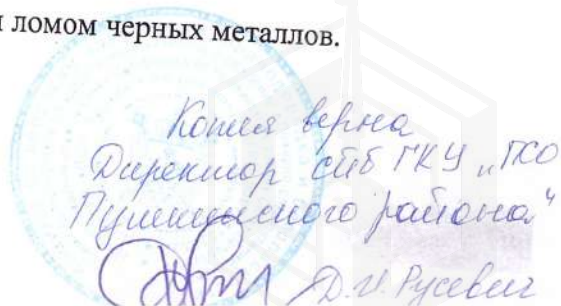 ломом черных металлов.
Копия верна
Директор СПб ГКУ „ГКО
Пушкинского района“
Д.И. Русевич